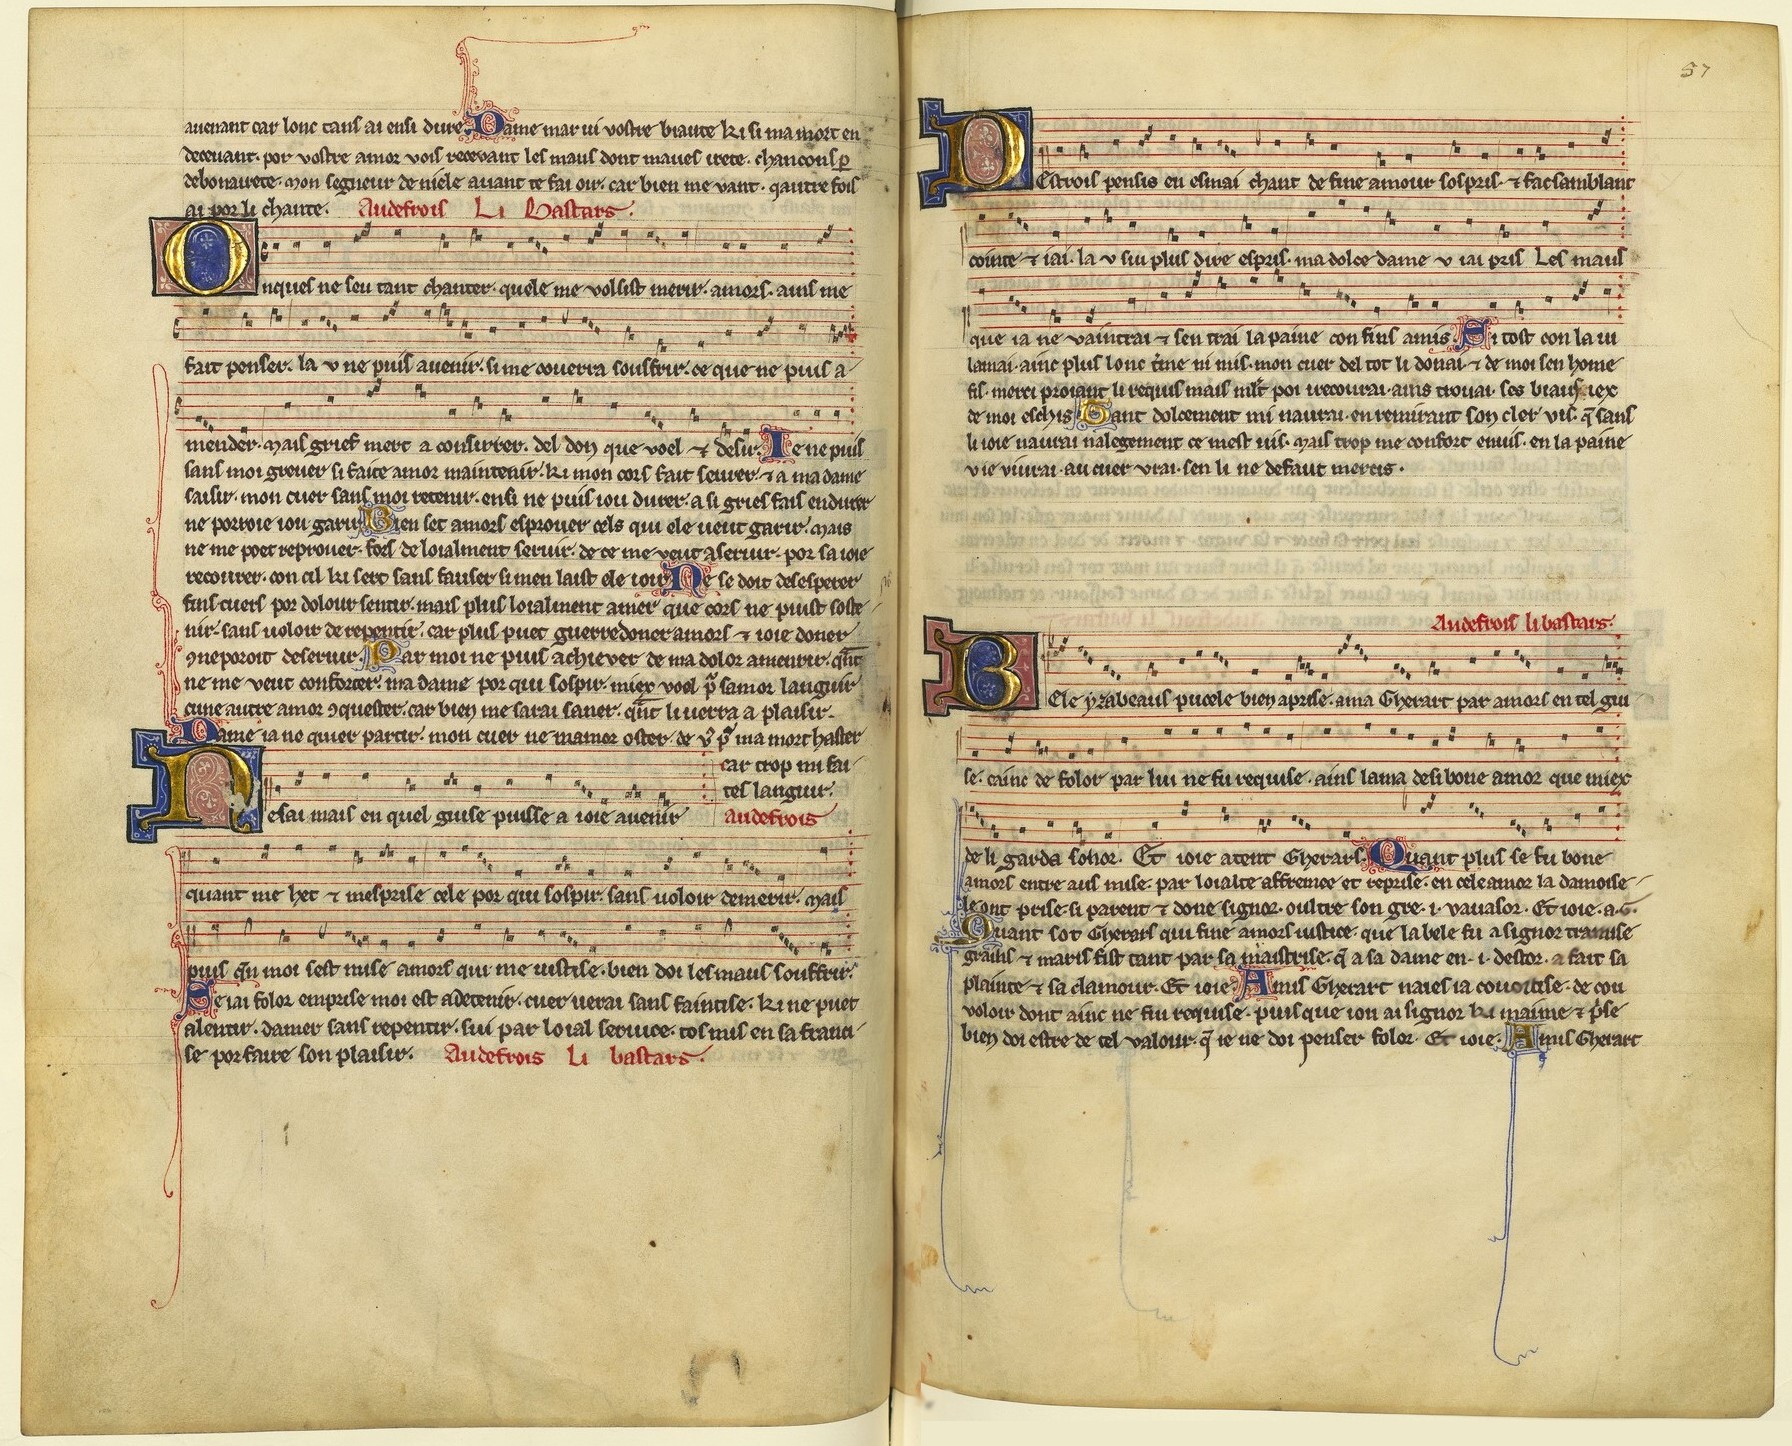 auenant car lonc tans ai ensi dure. Dame mar ui vostre biaute ki si ma mort en
deceuant. por vostre amor vois recevant les maus dont maues irete. chancons p̱
debonairete. mon segneur de niele auant te fai oir. car bien me vant. qautre fois
ai por li chante. Audefrois Li Bastars.
Onques ne seu tant chanter. quele me vollist merir. amors. ains me
fait penser. la v ne puis auenir. si me couerra souffrir. ce que ne puis a
mender. mais grief mert a consirrer. del don que voel ⁊ desir. Ie ne puis
sans moi greuer si faite amor maintenir. ki mon cors fait seurer. ⁊ a ma dame
saisir. mon cuer sans moi retenir. ensi ne puis iou durer. a si gries fais endurer
ne porroie iou garir. Bien set amors esprouer cels qui ele ueut garir. mais
ne me poet reprouer. fors de loialment seruir. de ce me veut aseruir. por sa ioie
recourer. con cil ki sert sans fauser si men laist ele ioir. Ne se doit desesperer
fins cuers por dolour sentir. mais plus loialment amer que cors ne puist soste
nir. sans uoloir de repentir. car plus puet guerredoner amors ⁊ ioie doner
ꝯne poroit deseruir. Par moi ne puis achiever de ma dolor amenrir. qn̄t
ne me veut conforter. ma dame por qui sospir. miex voel p̄ samor languir
cune autre amor ꝯquester. car bien me sarai saner. qn̄t li uerra a plaisir.
Dame ia ne quier partir. mon cuer ne mamor oster. de v̄ p̄ ma mort haster
car trop mi fai
tes languir.
Ne sai mais en quel guise puisse a ioie auenir Audefrois
quant me het ⁊ mesprise cele por qui sospir. sans uoloir demerir. mais
puis qn̄ moi sest mise amors qui me iustise. bien doi les maus souffrir.
Se iai folor emprise moi est a detenir. cuer uerai sans faintise. ki ne puet
alentir. damer sans repentir. sui par loial seruice. tos mis en sa franci
se por faire son plaisir. Audefrois Li bastars.
57
Destrois pensis en esmai chant de fine amour sospris. ⁊ fac samblant
cointe ⁊ iai. la v sui plus dire espris. ma dolce dame v iai pris Les maus
que ia ne vaintrai ⁊ sen trai la paine con fins amis. Si tost con la ui
lamai. ainc plus lonc t̄me ni mis. mon cuer del tot li donai. ⁊ de moi sen home
fis. merci proiant li requis mais ml̄t poi irecourai. ains trouai. ses biaus iex
de moi eschis. Tant dolcement mi naurai. en remirant son cler vis. q̄ sans
li ioie naurai nalegement ce mest uis. mais trop me confort enuis. en la paine
v ie viurai. au cuer vrai. sen li ne defaut mercis.
Audefrois li bastars.
Bele yzabeaus pucele bien aprise. ama Gherart par amors en tel gui
se. cainc de folor par lui ne fu requise. ains lama de si bone amor que miex
de li garda sonor. Et ioie atent Gherars. Quant plus se fu bone
amors entre aus mise. par loialte affremee et reprise. en cele amor la damoise
le ont prise. si parent ⁊ done signor. oultre son gre. i. vauasor. Et ioie. a. G.
Quant sot Gherars qui fine amors iustice. que la bele fu a signor tramise
grains ⁊ maris fist tant par sa maistrise. q̄ a sa dame en. i. destor. a fait sa
plainte ⁊ sa clamour. Et ioie. Amis Gherart naies ia couoitise. de cou
voloir dont ainc ne fui requise. puis que ion ai signor ki maime ⁊ p̄se
bien doi estre de tel valour. q̄ ie ne doi penser folor. Et ioie. Amis Gherart